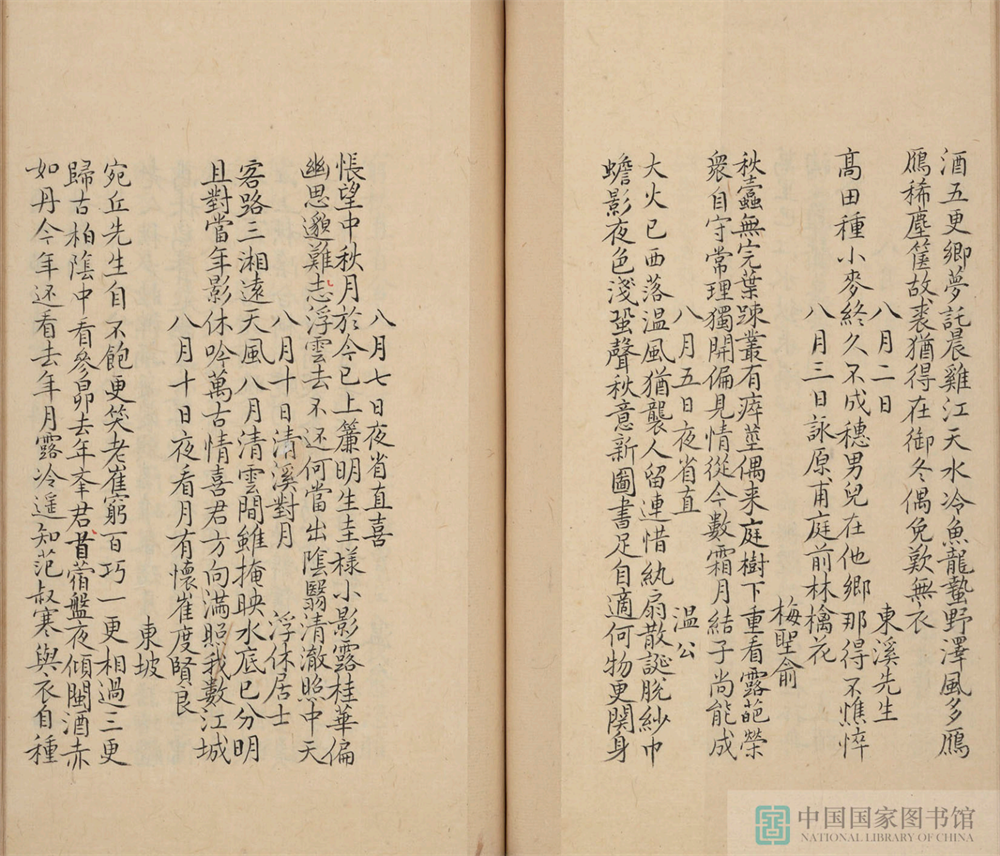 酒五更鄉夢託晨雞江天水冷魚龍蟄野澤風多鴈
鴈稀塵篋故裘猶得在御冬偶免歎無衣
八月二日　東溪先生
高田種小麥終久不成穗男兒在他鄉那得不憔悴
八月三日詠原甫庭前林檎花
梅聖俞
秋蠹無完葉踈叢有瘁莖偶来庭樹下重看露葩榮
衆自守常理獨開偏見情從今數霜月結子尚能成
八月五日夜省直　温公
大火已西落温風猶襲人留連惜紈扇散誕脱紗巾
蟾影夜色淺蛩聲秋意新圖書足自適何物更関身
八月七日夜省直喜
悵望中秋月於今已上簾明生圭様小影露桂華偏
幽思邈難志浮雲去不还何當出陰翳清澈照中天
八月十日清溪對月　浮休居士
客路三湘遠天風八月清雲開雖掩映水底已分明
且對當年影休吟萬古情喜君方向滿照我數江城
八月十日夜看月有懷崔度賢良
東坡
宛丘先生自不飽更笑老崔窮百巧一更相過三更
歸古柏陰中看參昴去年奉君苜蓿盤夜傾閩酒赤
如丹今年还看去年月露冷遥知范叔寒與衣自種
中国国家图书馆
NATIONAL LIBRARY OF CHINA